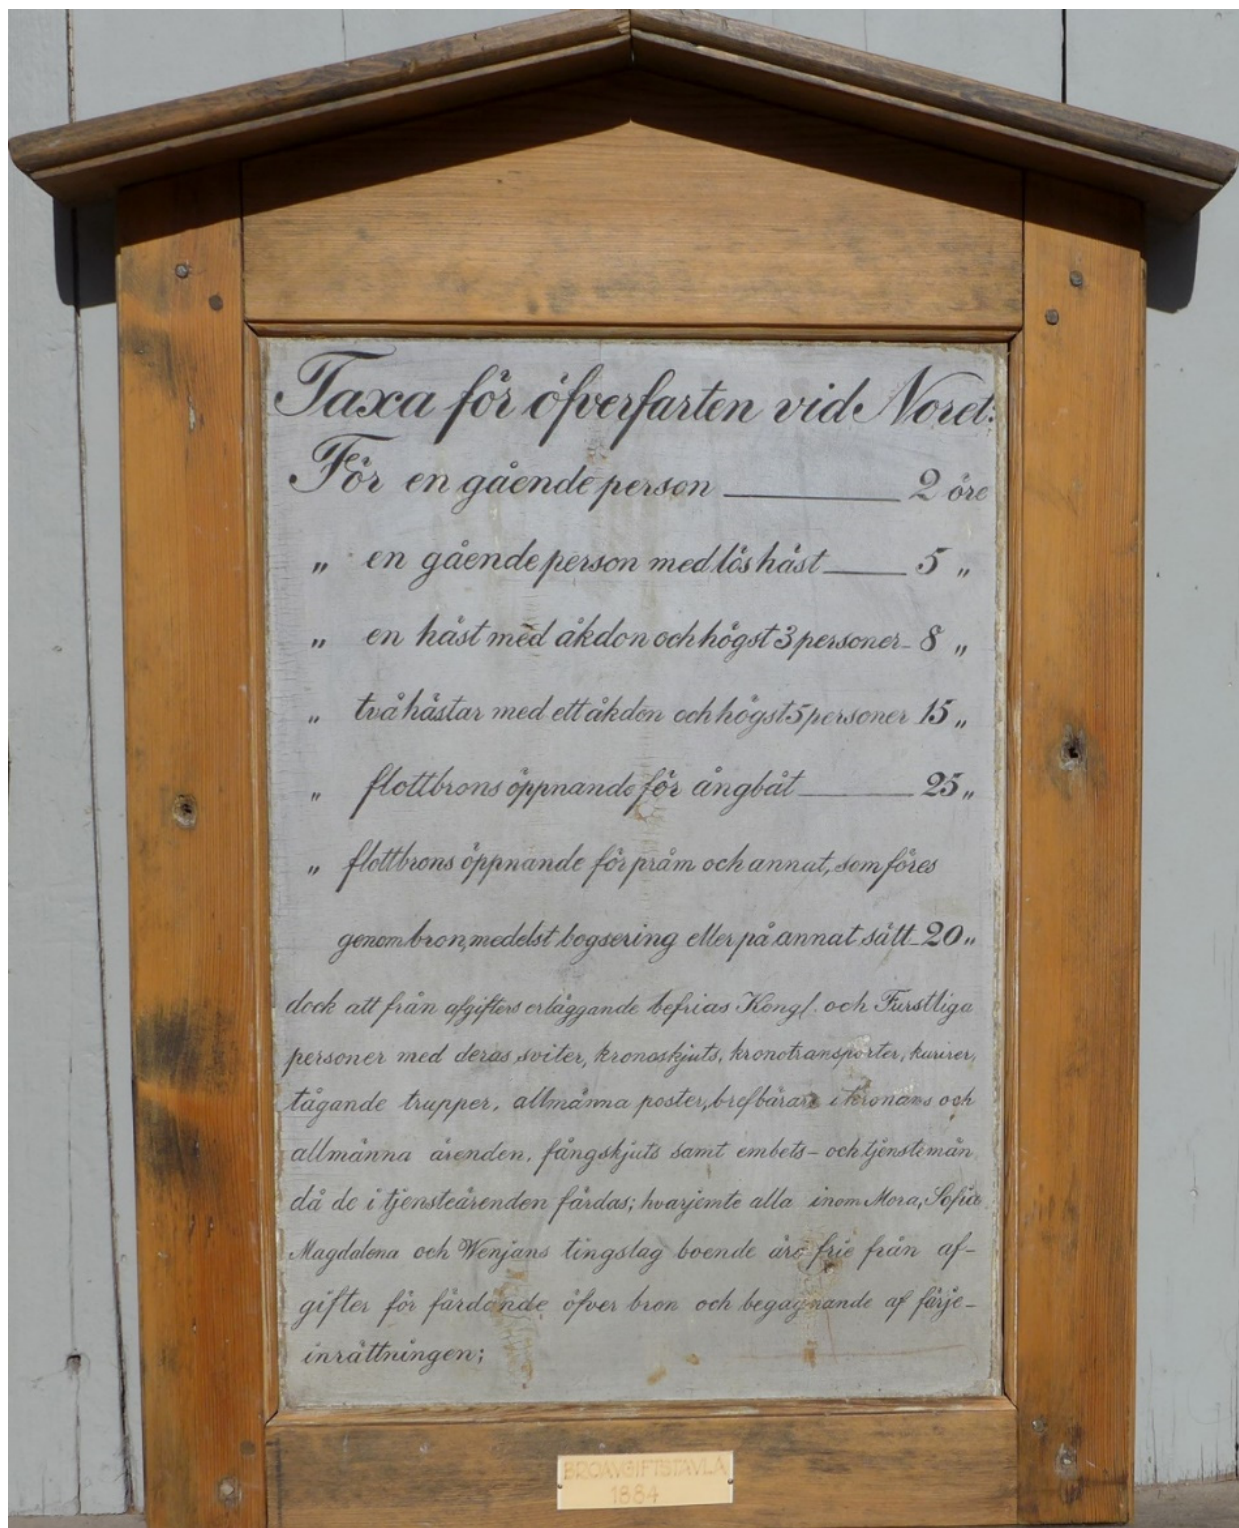 Taxa för öfverfarten vid Noret:
För en gående person 2 öre
„ en gående person med lös häst 5 „
„ en häst med åkdon och högst 3 personer 8 „
„ två hästar med ett åkdon och högst 5 personer 15 „
„ flottbrons öppnande för ångbåt 25 „
„ flottbrons öppnande för pråm och annat, som föres
genom bron, medelst bogsering eller på annat sätt 20 „
dock att från afgifters erläggande befrias Kongl. och Furstliga
personer med deras sviter, kronoskjuts, kronotransporter, kurirer,
tågande trupper, allmänna poster, brefbärare i kronans och
allmänna ärenden, fångskjuts samt embets- och tjenstemän
då de i tjensteärenden färdas; hvarjemte alla inom Mora, Sofia
Magdalena och Wenjans tingslag boende äro frie från af-
gifter för färdande öfver bron och begagnande af färje-
inrättningen;
BROAVGIFTSTAVLA
1884